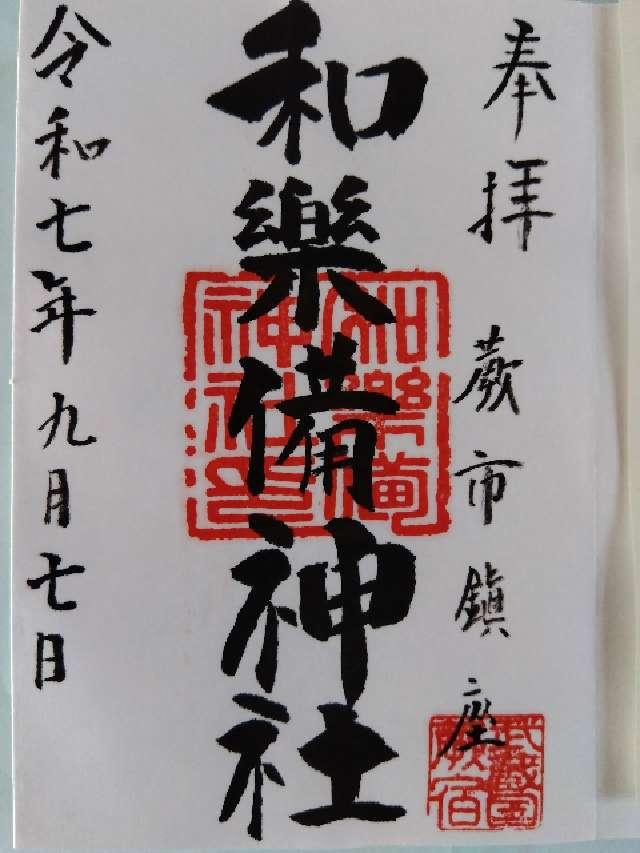 奉拝 蕨市鎮座
和樂備神社
令和七年九月七日
和樂備神社印
武蔵国蕨宿